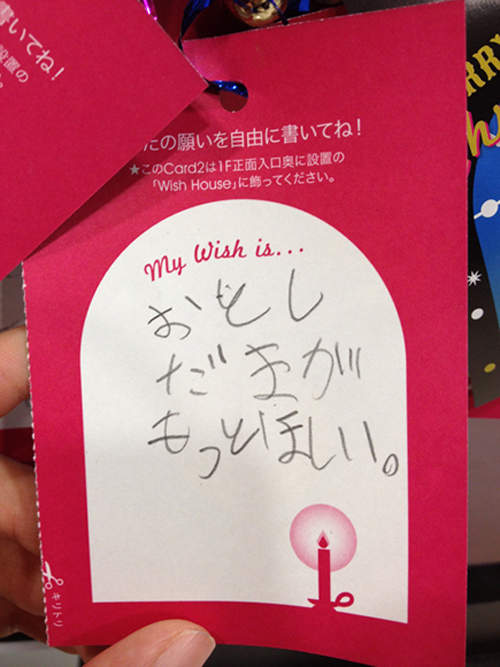 書いてね!
設置の
たの願いを自由に書いてね!
★このCard2は1F正面入口奥に設置の
「Wish House」に飾ってください。
My Wish is...
おとし
だまが
もっとほしい。
キリトリ